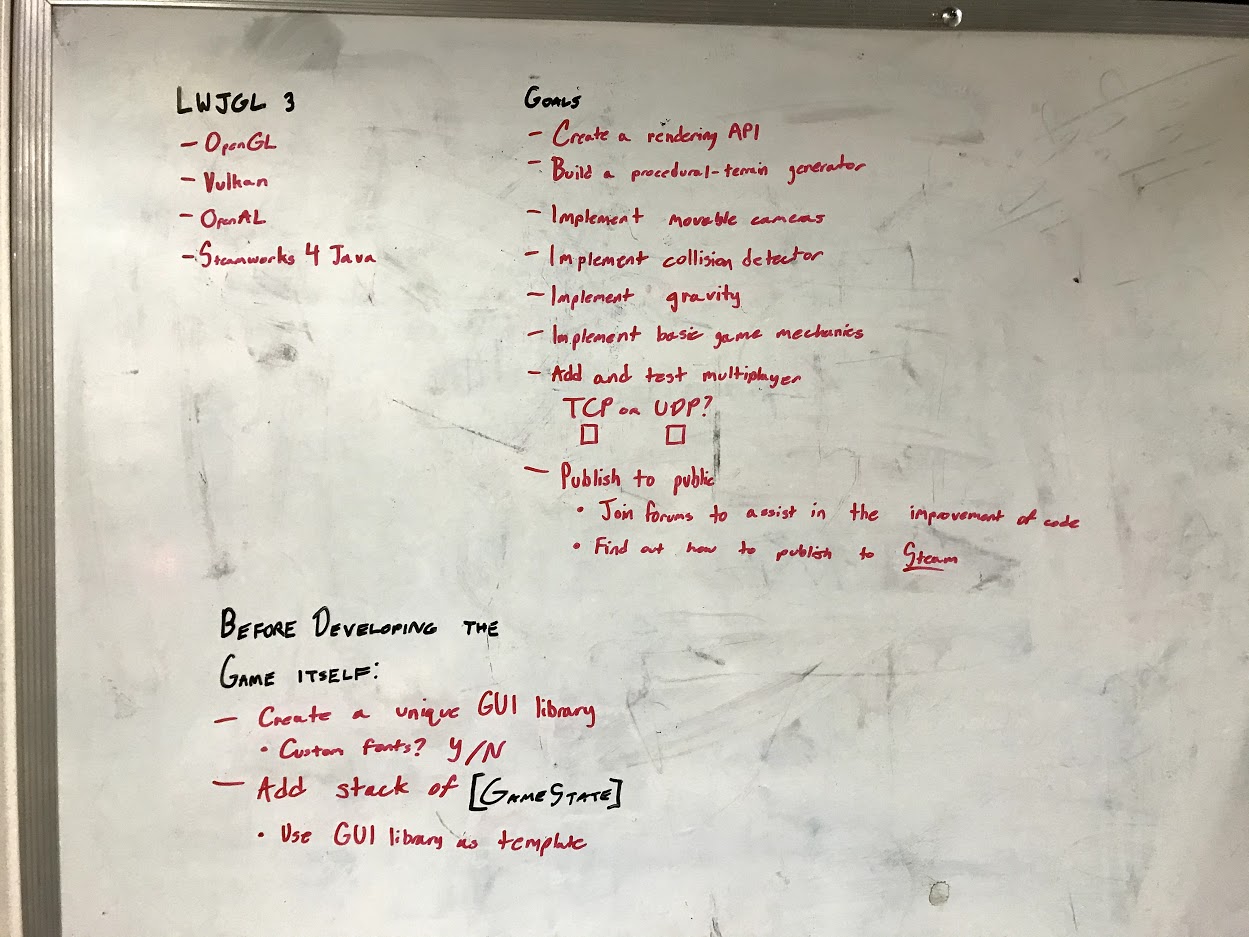 LWJGL 3
- OpenGL
- Vulkan
- OpenAL
- Steamworks 4 Java
Goals
- Create a rendering API
- Build a procedural-terrain generator
- Implement movable cameras
- Implement collision detector
- Implement gravity
- Implement basic game mechanics
- Add and test multiplayer
TCP or UDP?
☐ ☐
- Publish to public
• Join forums to assist in the improvement of code
• Find out how to publish to Steam
BEFORE DEVELOPING THE
GAME ITSELF:
- Create a unique GUI library
• Custom fonts? Y/N
- Add stack of [GAMESTATE]
• Use GUI library as template